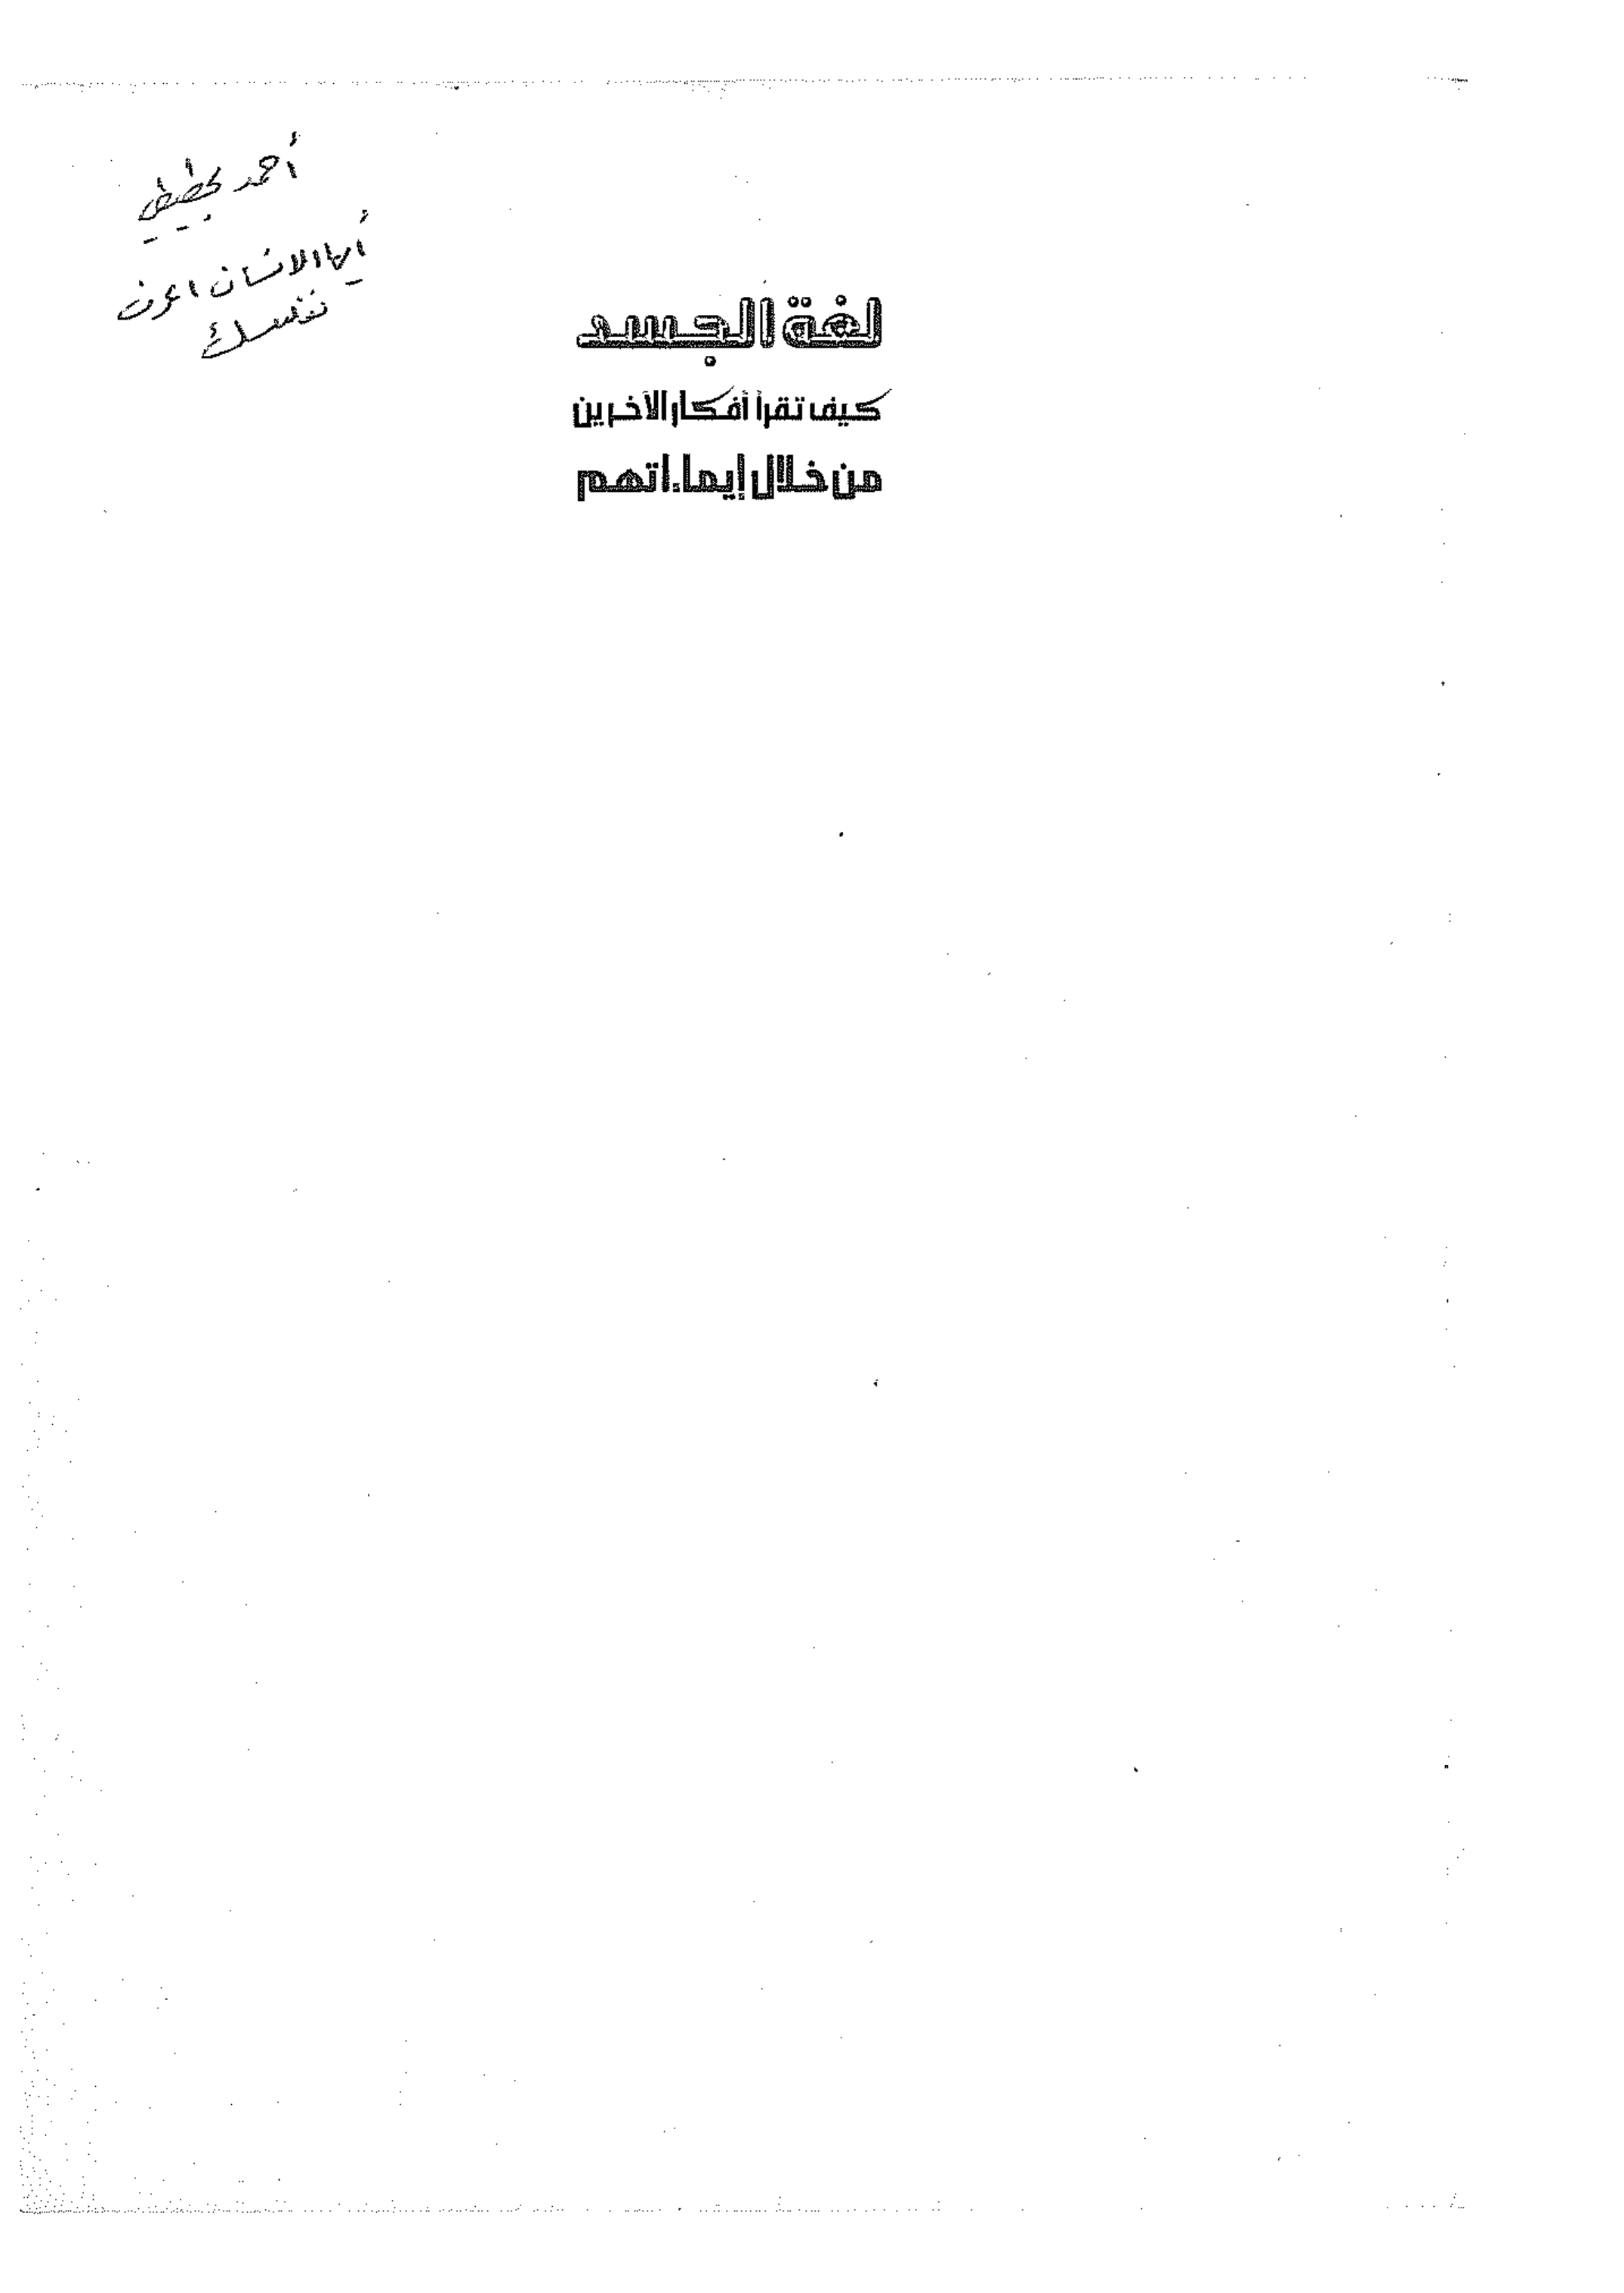 أحمد
أيها الانسان اعرف
نفسك
لغة الجسد
كيف تقرأ أفكار الآخرين
من خلال إيماءاتهم